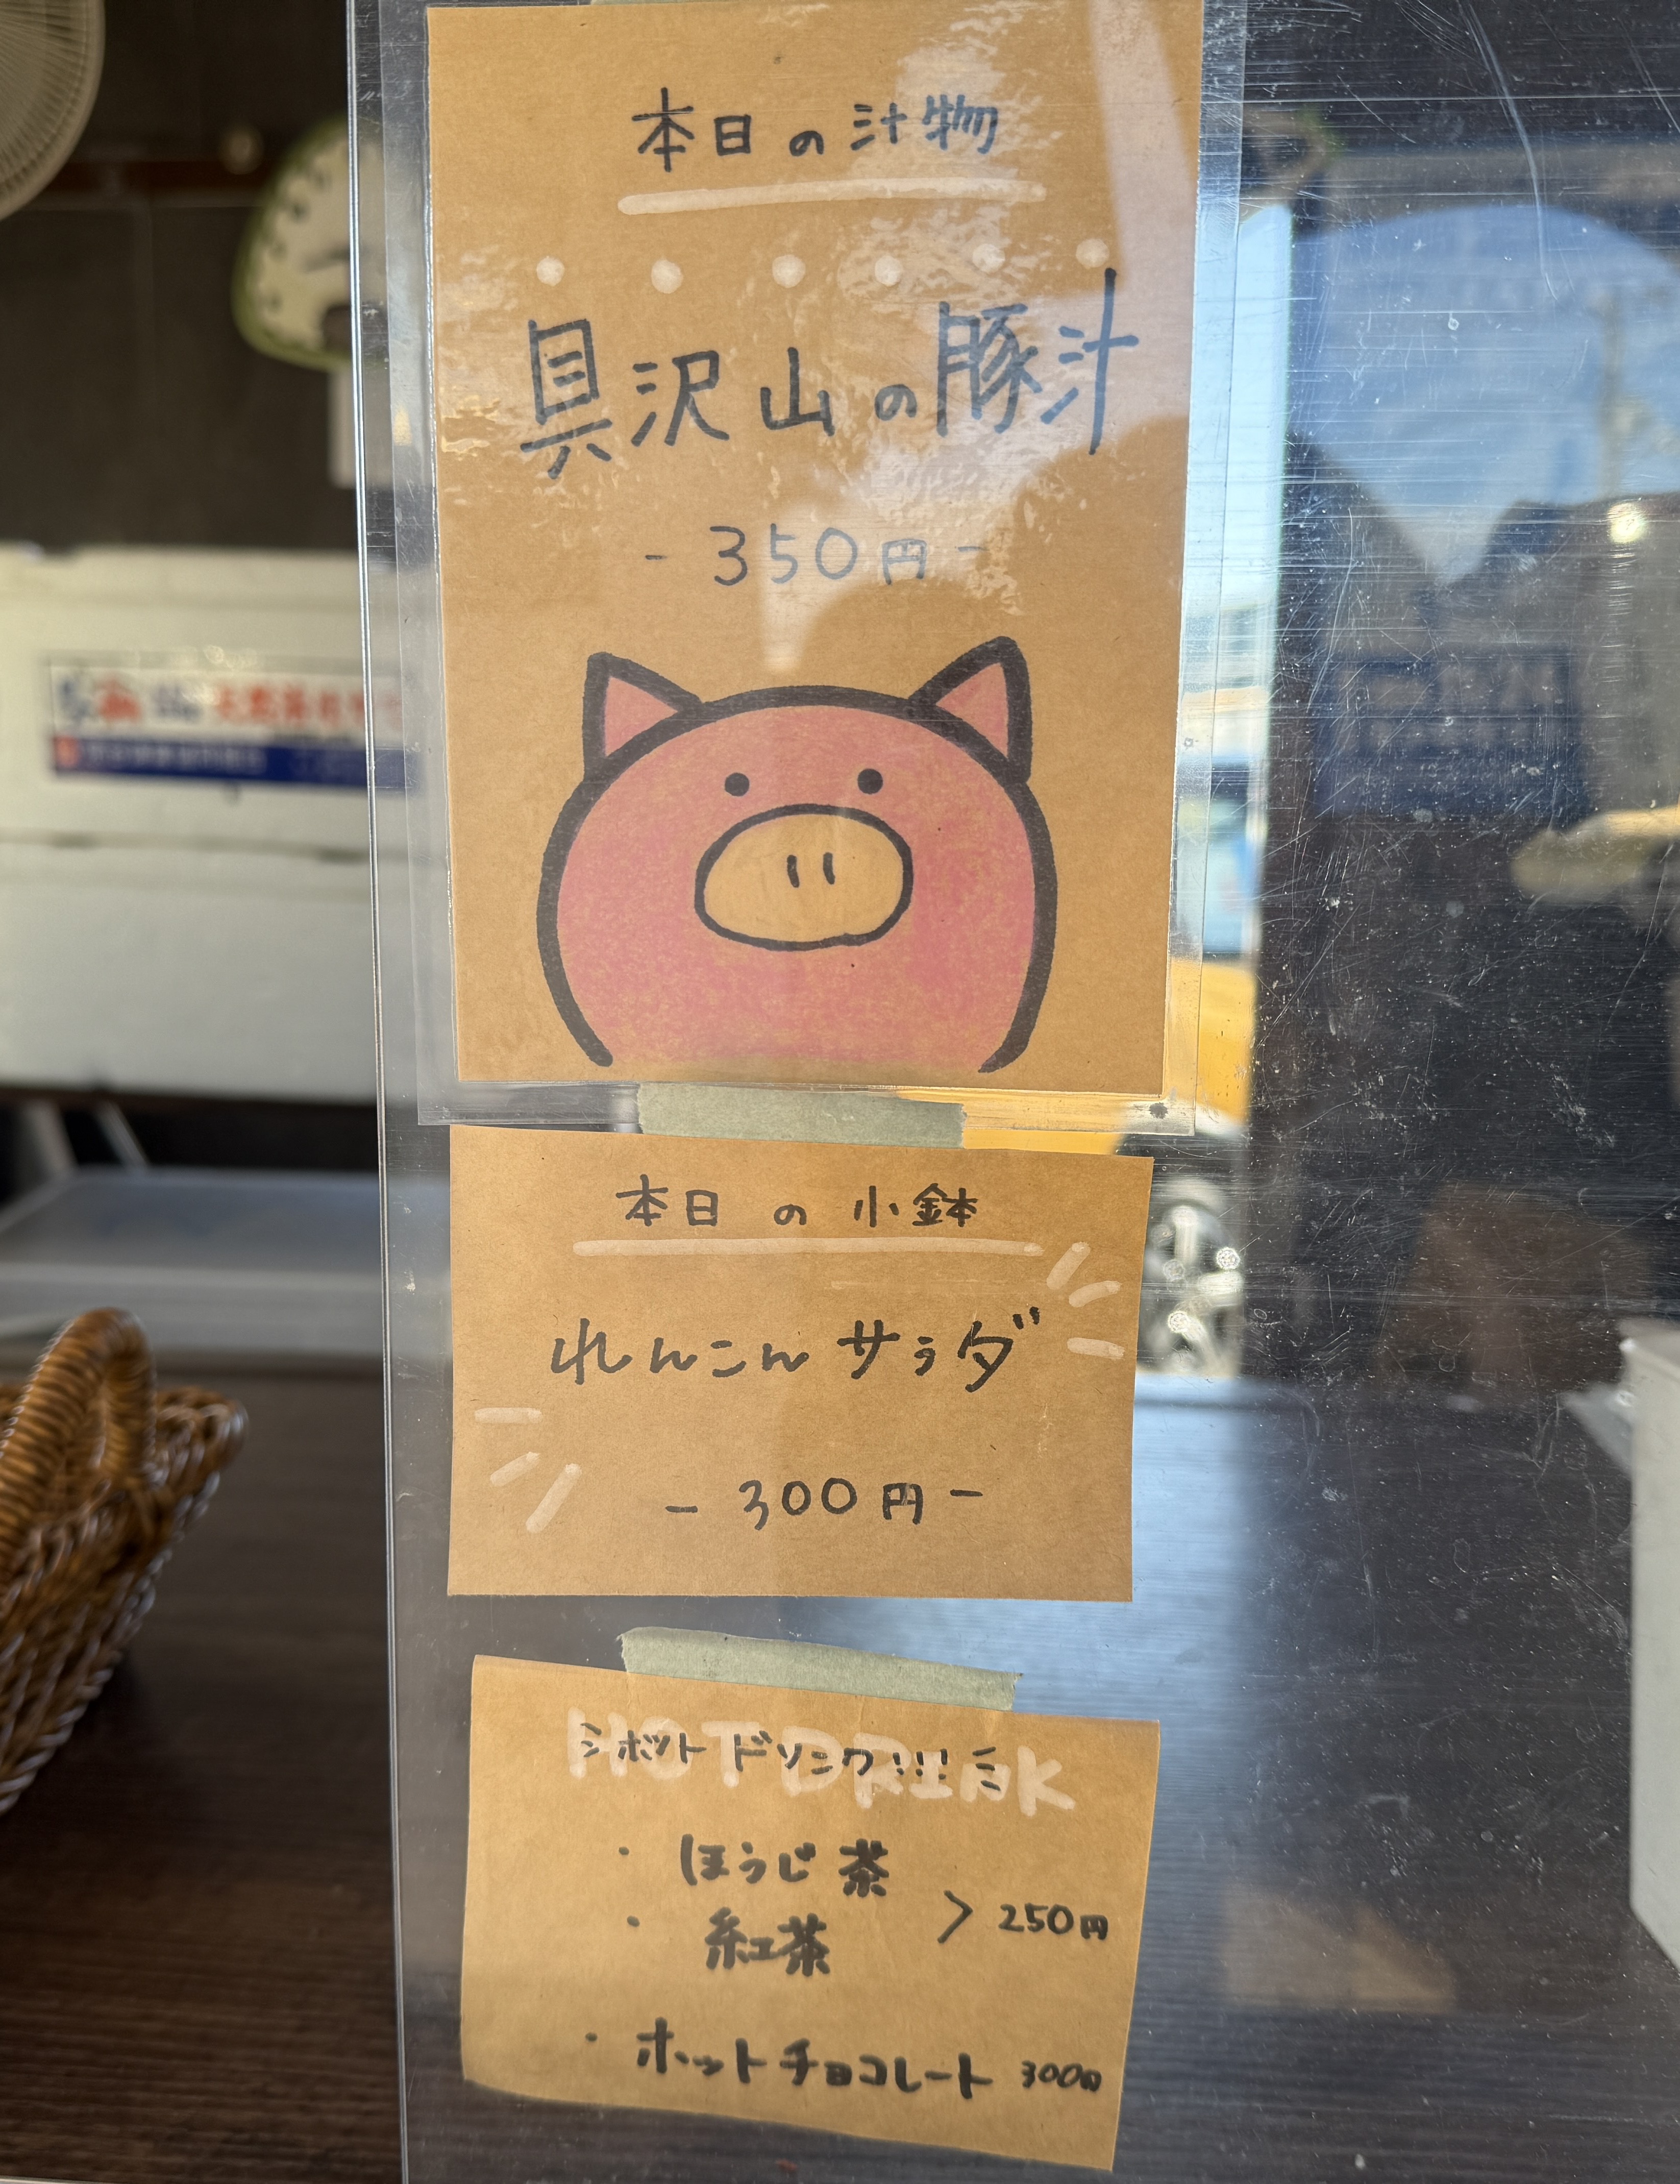 本日の汁物
具沢山の豚汁
- 350円 -
本日の小鉢
れんこんサラダ
- 300円 -
HOT DRINK
ホットドリンク!!!
・ほうじ茶
・紅茶
> 250円
・ホットチョコレート 300円